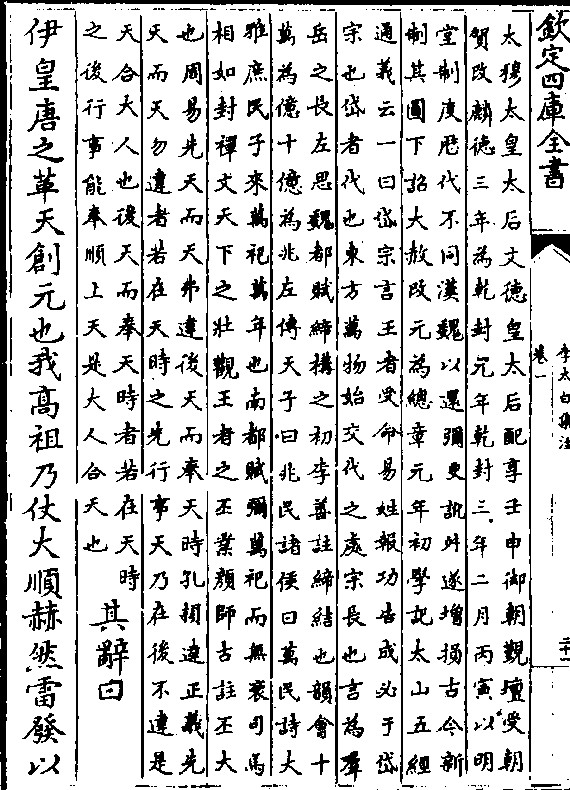 欽定四庫全書
李太白集注
卷一
二十一
太穆太皇太后文德皇太后配享壬申御朝覲壇受朝
賀改麟德三年為乾封元年乾封三年二月丙寅以明
堂制度歷代不同漢魏以還彌更訛舛遂增損古今新
制其圖下詔大赦改元為總章元年初學記太山五經
通義云一曰岱宗言王者受命易姓報功告成必于岱
宗也岱者代也東方萬物始交代之處宗長也言為羣
岳之長左思魏都賦締構之初李善註締結也韻會十
萬為億十億為兆左傳天子曰兆民諸侯曰萬民詩大
雅庶民子來萬祀萬年也南都賦彌萬祀而無衰司馬
相如封禪文天下之壯觀王者之丕業顏師古註丕大
也周易先天而天弗違後天而奉天時孔穎達正義先
天而天勿違者若在天時之先行事天乃在後不違是
天合大人也後天而奉天時者若在天時
之後行事能奉順上天是大人合天也
其辭曰
伊皇唐之革天創元也我高祖乃仗大順赫然雷發以